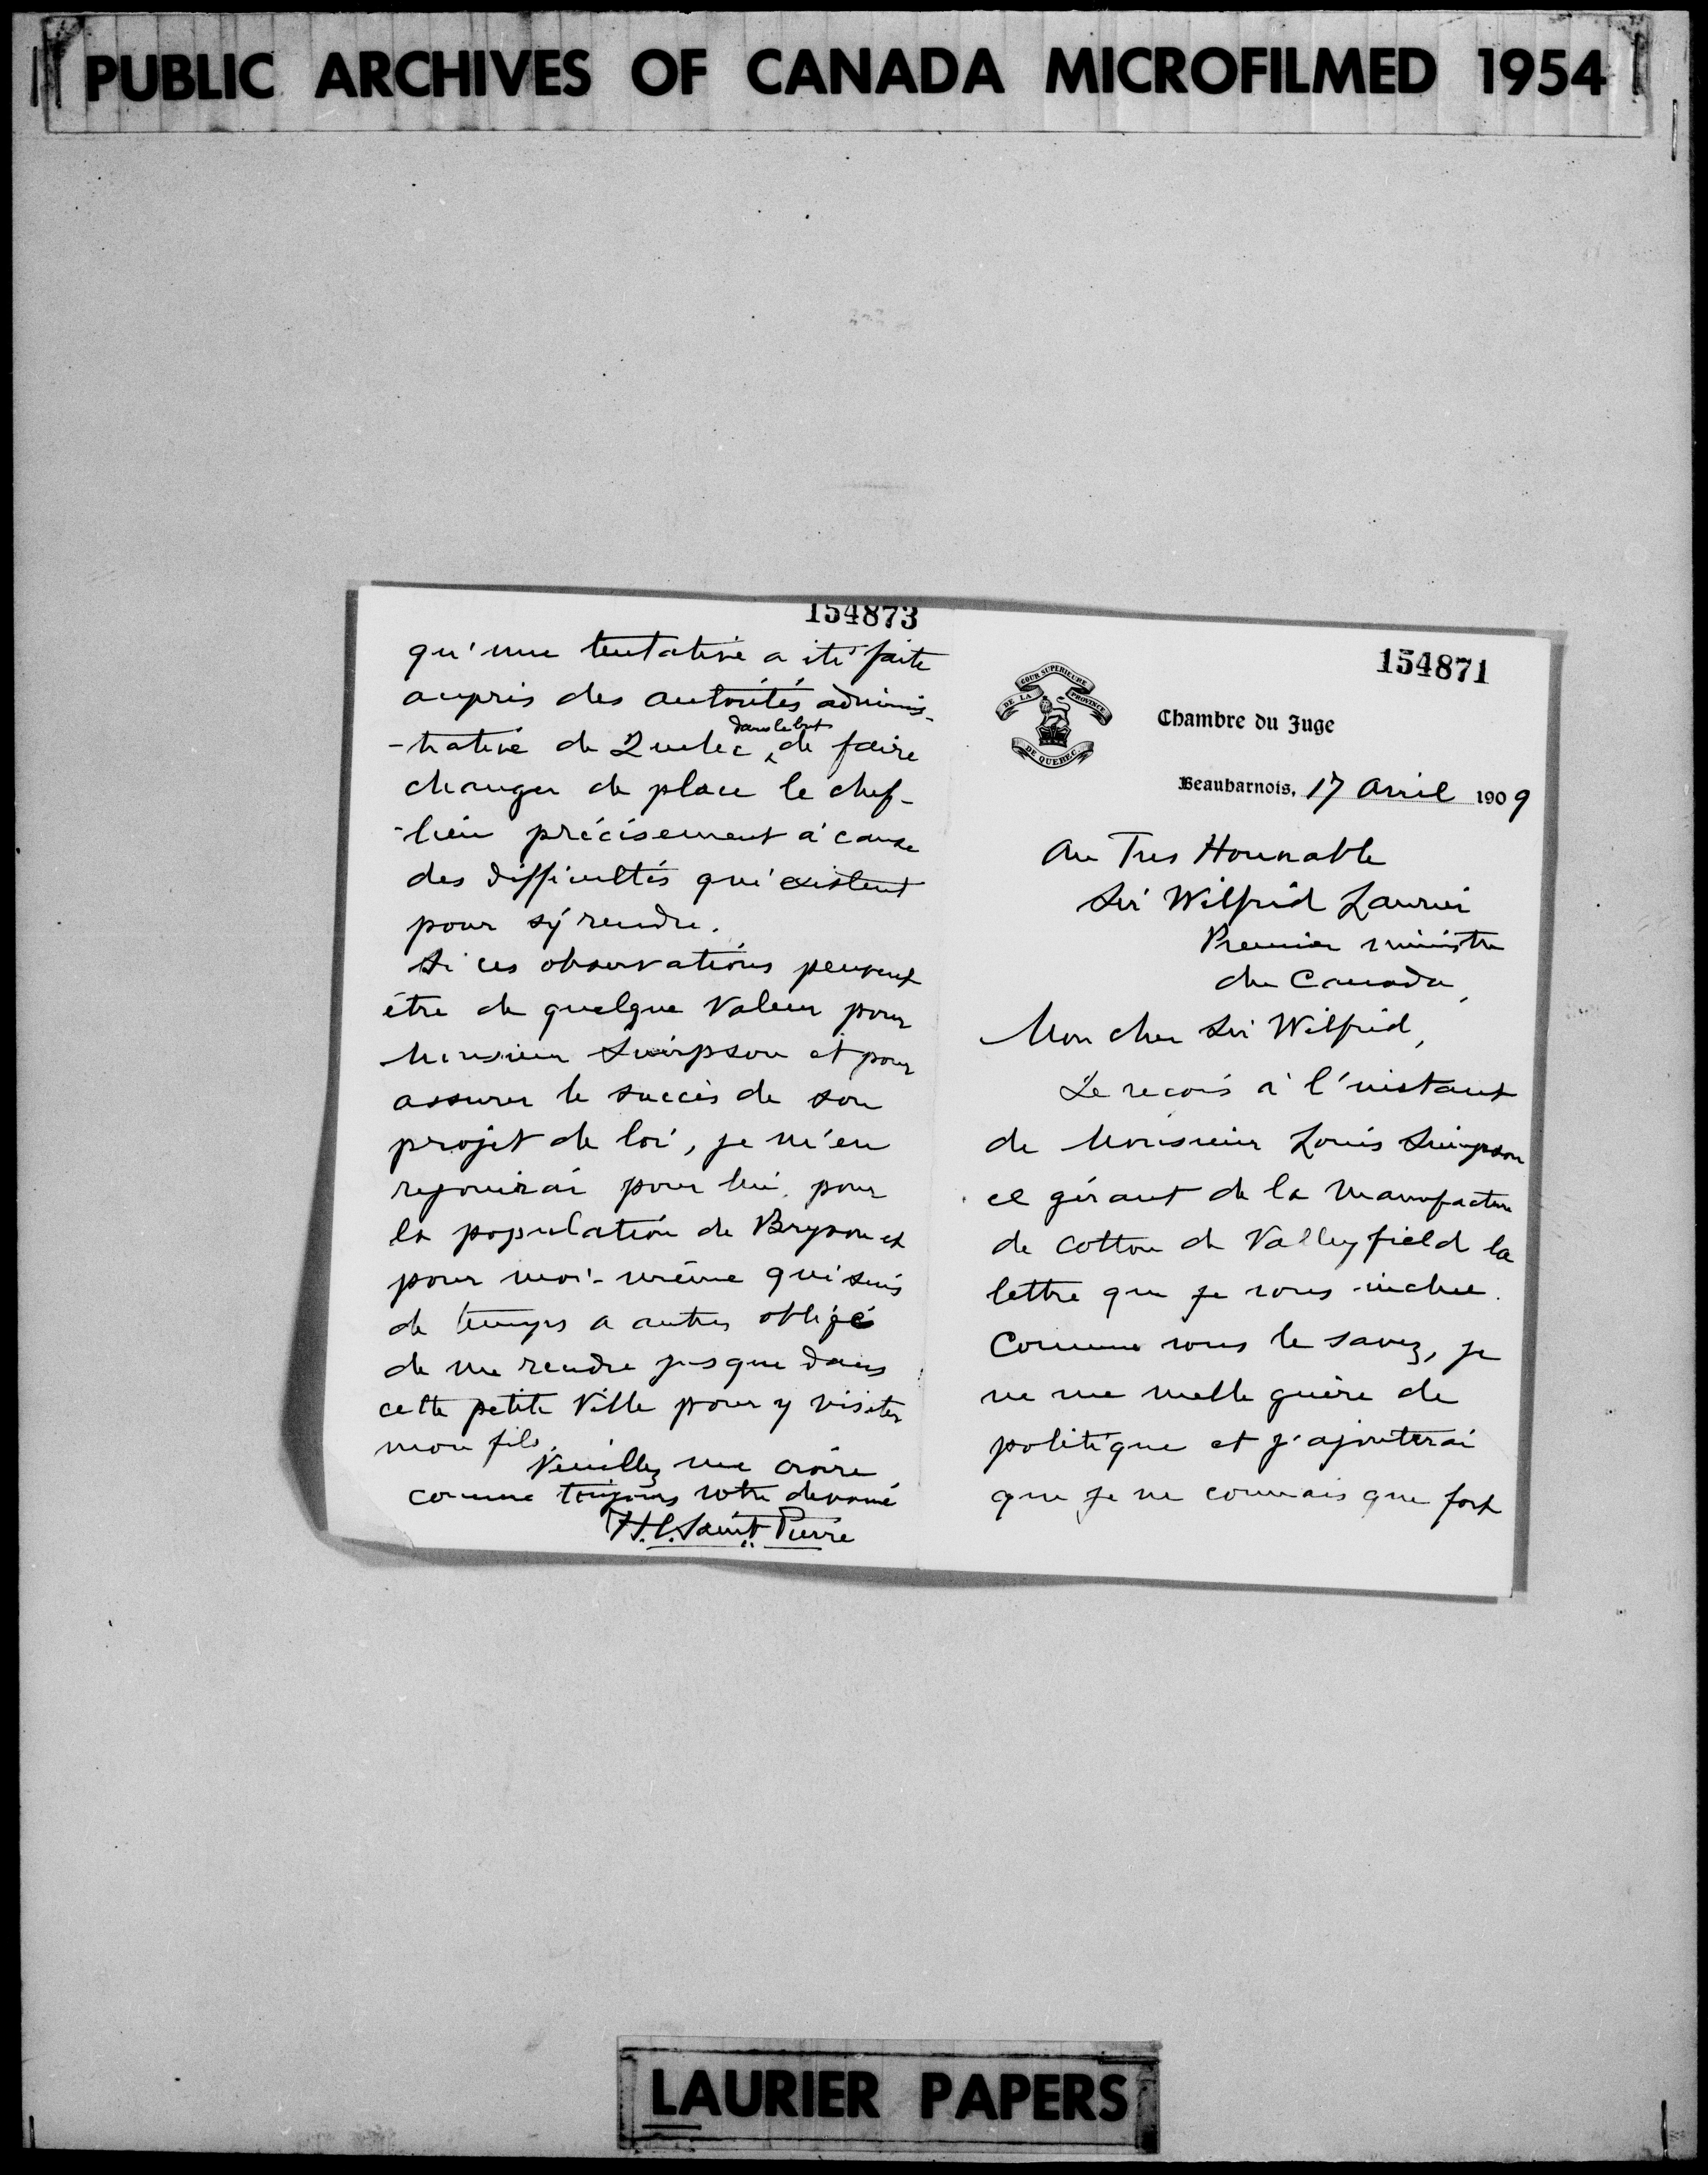 PUBLIC ARCHIVES OF CANADA MICROFILMED 1954
154873
qu'une tentative a été faite
auprès des autorités adminis-
-trative de Québec dans le but de faire
changer de place le chef-
-lieu précisement à cause
des difficultés qui existent
pour s'y rendre.
Si ces observations peuvent
être de quelque valeur pour
Monsieur Simpson et pour
assurer le succès de son
projet de loi, je m'en
rejouirai pour lui, pour
la population de Bryson et
pour moi-même qui suis
de temps a autres obligé
de me rendre jusque dans
cette petite ville pour y visiter
mon fils.
Veuillez me croire
comme toujours votre devoué
H.C. Saint Pierre
154871
COUR SUPERIEURE
DE LA PROVINCE
DE QUEBEC
Chambre du Juge
Beauharnois, 17 Avril 1909
Au Tres Honorable
Sir Wilfrid Laurier
Premier ministre
du Canada,
Mon cher Sir Wilfrid,
Je recois à l'instant
de Monsieur Louis Simpson
el gérant de la Manufacture
de cotton de Valleyfield la
lettre que je vous inclue.
Comme vous le savez, je
ne me melle guère de
politique et j'ajouterai
que je ne connais que fort
LAURIER PAPERS